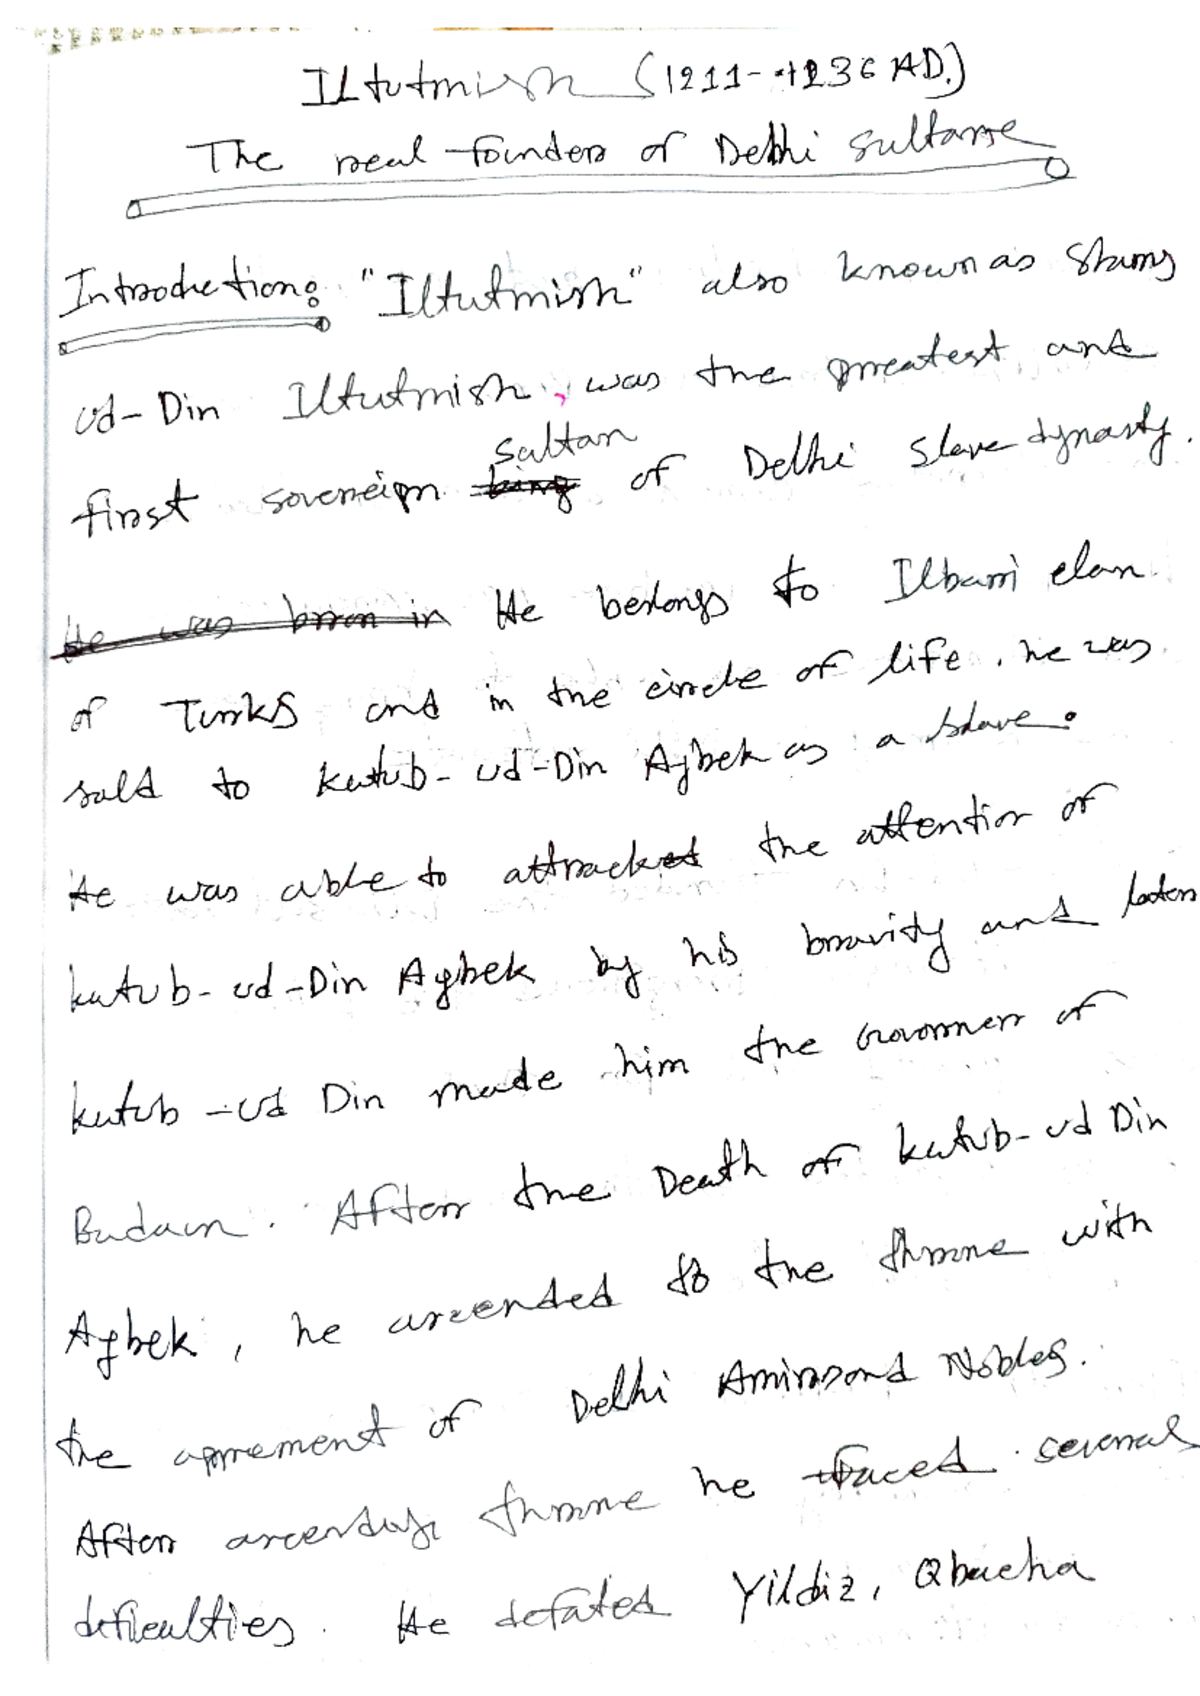 Iltutmish (1211-1236 AD.)
The real founder of Delhi Sultane
Introduction: "Iltutmish" also known as Shams
ud-Din Iltutmish, was the greatest and
first sovereign king sultan of Delhi Slave dynasty.
He was born in He belongs to Ilbari clan
of Turks and in the circle of life, he was
sold to kutub-ud-Din Aybek as a slave.
He was able to attracket the attention of
kutub-ud-Din Aybek by his bravity and later
kutub-ud Din made him the Governerr of
Badaun. After the Death of kutub-ud Din
Aybek, he arcended to the throne with
the agreement of Delhi Amirs and Nobles.
After arcending throne he faced several
deficulties. He defated Yildiz, Qbacha